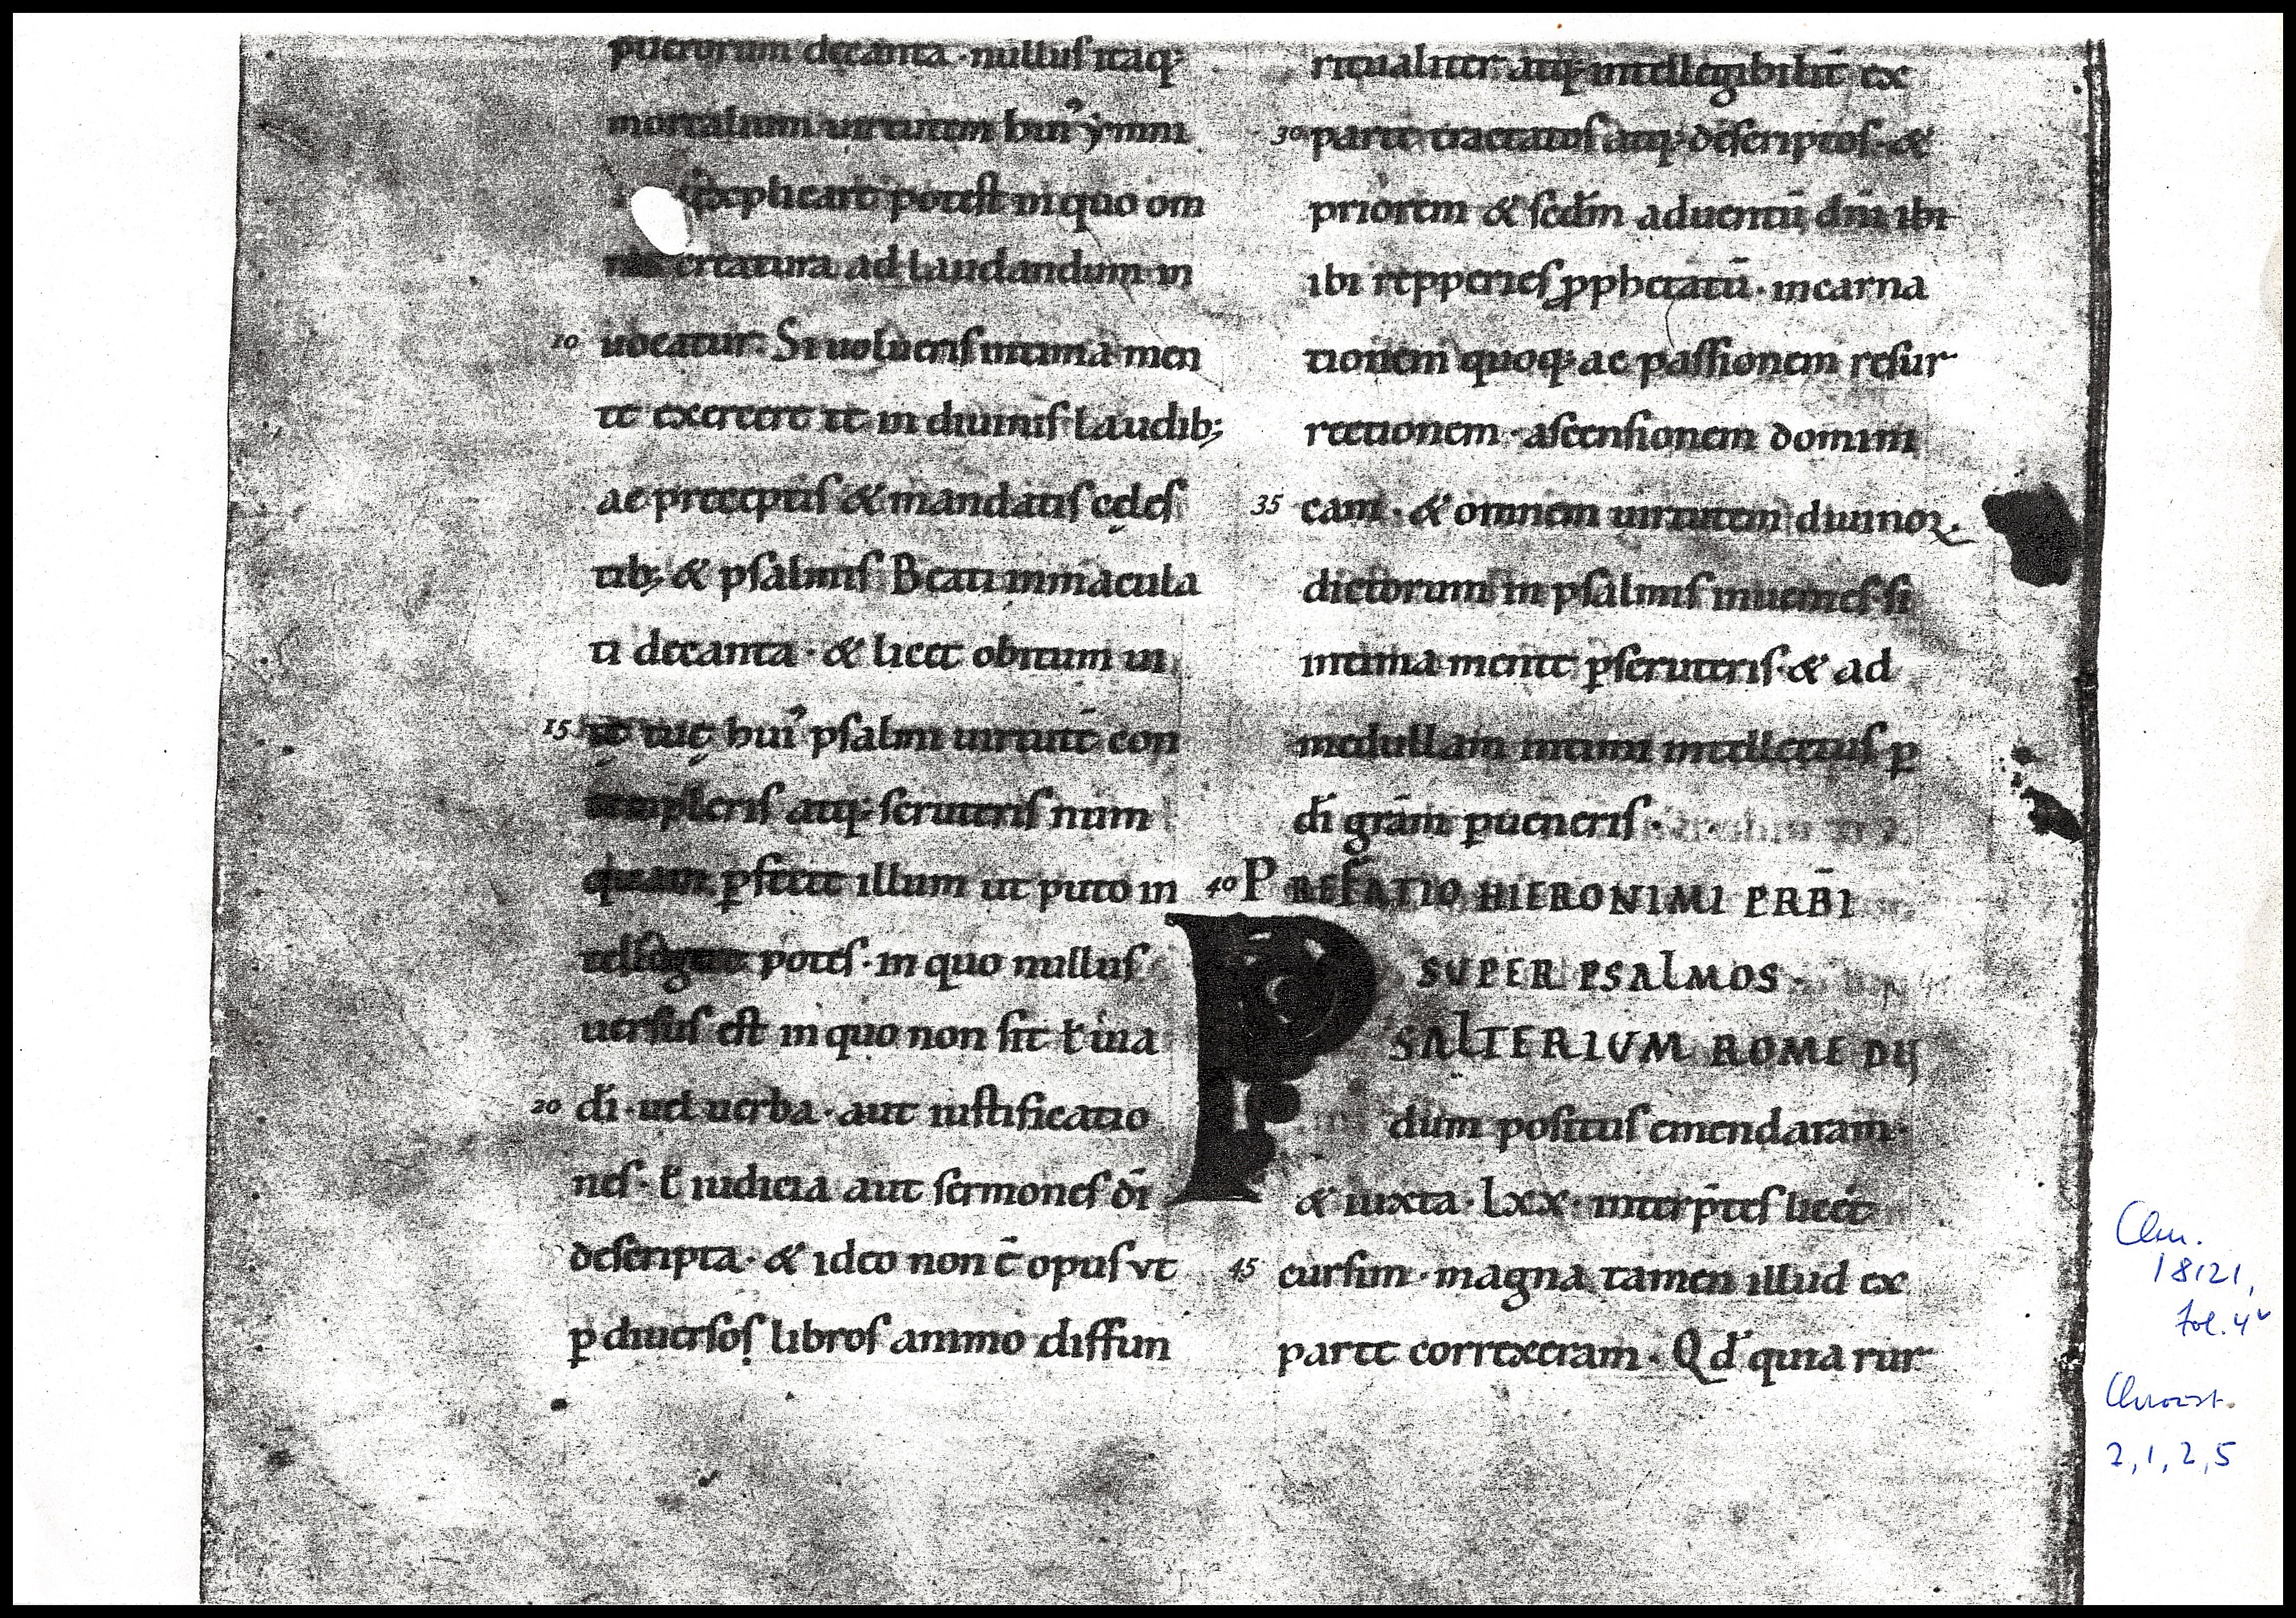 puerorum decanta · nullus itaq;
mortalium uirtutem huiꝰ ẏmni
explicare potest in quo om
nis creatura ad laudandum in
10 uocatur. Si uolueris intima men
te exercere te in diuinis laudib;
ac preceptis & mandatis cęles
tib; & psalmis Beati immacula
ti decanta · & licet obitum ui
15 tę tuę huiꝰ psalmi uirtutē con
templeris atq; scruteris num
quam ꝑfecte illum ut puto in
tellegere potes · in quo nullus
uersus est in quo non sit ł uia
20 dī · uel uerba · aut iustificatio
nes · ł iudicia aut sermones dī
descripta · & ideo non ē opus vt
ꝑ diuersos libros animo diffun
ritualiter atq; intellegibilit̄ ex
30 parte tractatos atq; descriptos · &
priorem & scdm̄ aduentū dn̄i ibi
ibi repperies ꝓphetatū · incarna
tionem quoq; ac passionem resur
rectionem · ascensionem domini
35 cam · & omnem uirtutem diuinoꝝ
dictorum in psalmis inuenies · si
intima mente ꝑscruteris · & ad
medullam intimi intellectus ꝑ
dī gram̄ ꝑueneris ·
40 PREFATIO HIERONIMI PRB̄I
SUPER PSALMOS ·
PSALTERIVM ROME DU
dum positus emendaram ·
& iuxta · Lxx · interp̄tes licet
45 cursim · magna tamen illud ex
parte correxeram · Qd̄ quia rur
Clm.
18121,
fol. 4v
2, 1, 2, 5